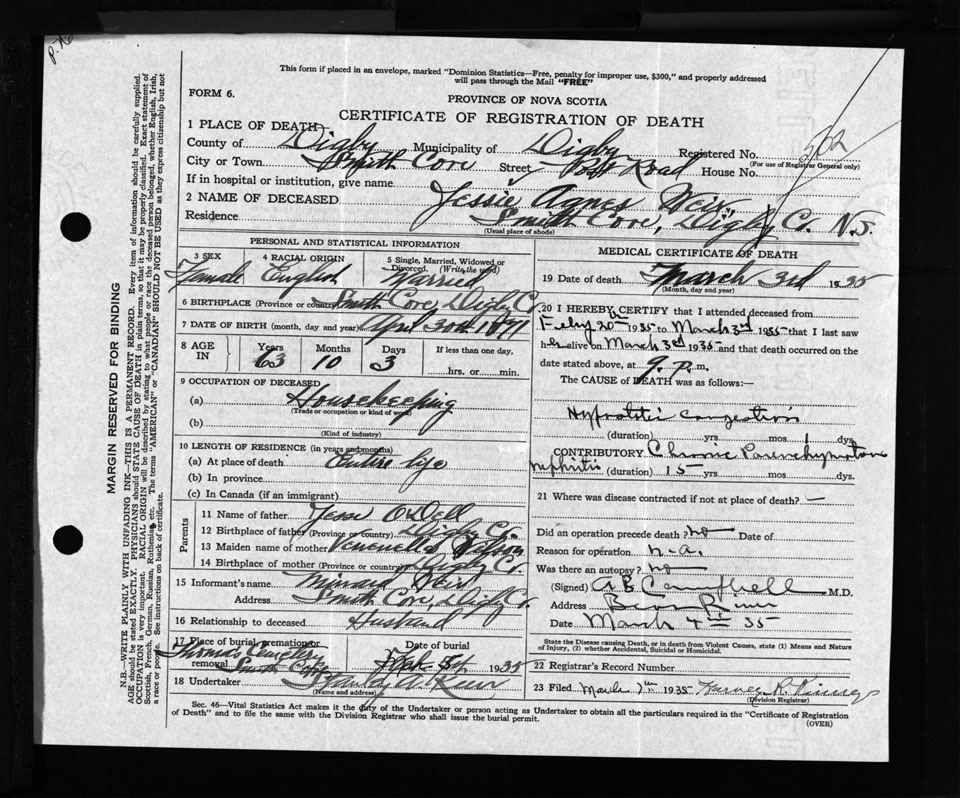 This form if placed in an envelope, marked "Dominion Statistics—Free, penalty for improper use, $300," and properly addressed
will pass through the Mail "FREE"
FORM 6.
PROVINCE OF NOVA SCOTIA
CERTIFICATE OF REGISTRATION OF DEATH
1 PLACE OF DEATH—
County of Digby Municipality of Digby Registered No. 502
(For use of Registrar General only)
City or Town Smith Cove Street Post Road House No.
If in hospital or institution, give name
2 NAME OF DECEASED Jessie Agnes Weir,
Residence Smith Cove, Digby Co. N.S.
(Usual place of abode)
PERSONAL AND STATISTICAL INFORMATION
3 SEX 4 RACIAL ORIGIN 5 Single, Married, Widowed or Divorced. (Write the word)
Female English Married
6 BIRTHPLACE (Province or country) Smith Cove, Digby Co.
7 DATE OF BIRTH (month, day and year) April 30th 1871
8 AGE IN Years Months Days If less than one day,
63 10 3 hrs. or min.
9 OCCUPATION OF DECEASED
(a) Housekeeping
(Trade or occupation or kind of work)
(b)
(Kind of industry)
10 LENGTH OF RESIDENCE (in years and months)
(a) At place of death Entire life
(b) In province
(c) In Canada (if an immigrant)
Parents
11 Name of father Jesse Odell
12 Birthplace of father (Province or country) Digby Co.
13 Maiden name of mother
14 Birthplace of mother (Province or country) Digby Co.
15 Informant's name Minard Weir
Address Smith Cove, Digby Co.
16 Relationship to deceased Husband
17 Place of burial, cremation or removal Date of burial
Smith Cove March 5th 1935
18 Undertaker Stanley A.
(Name and address)
MEDICAL CERTIFICATE OF DEATH
19 Date of death March 3rd 1935
(Month, day and year)
20 I HEREBY CERTIFY that I attended deceased from
Feby 20th 1935 to March 3rd 1935 that I last saw
her alive on March 3rd 1935 and that death occurred on the
date stated above, at 9. P. m.
The CAUSE of DEATH was as follows:—
Hypostatic congestion
(duration) yrs mos 1 dys.
CONTRIBUTORY Chronic Parenchymatous
nephritis (duration) 15 yrs mos dys.
21 Where was disease contracted if not at place of death? —
Did an operation precede death? no Date of
Reason for operation n.a.
Was there an autopsy? no
(Signed) A B Campbell M.D.
Address Bear River
Date March 4th 35
State the Disease causing Death, or in death from Violent Causes, state (1) Means and Nature
of Injury, (2) whether Accidental, Suicidal or Homicidal.
22 Registrar's Record Number
23 Filed March 7th 1935 Harvey R.
(Division Registrar)
Sec. 46—Vital Statistics Act makes it the duty of the Undertaker or person acting as Undertaker to obtain all the particulars required in the "Certificate of Registration
of Death" and to file the same with the Division Registrar who shall issue the burial permit.
(OVER)
MARGIN RESERVED FOR BINDING
N.B.—WRITE PLAINLY WITH UNFADING INK—THIS IS A PERMANENT RECORD. Every item of information should be carefully supplied.
AGE should be stated EXACTLY. PHYSICIANS should STATE CAUSE OF DEATH in plain terms, so that it may be properly classified. Exact statement of
OCCUPATION is very important. RACIAL ORIGIN will be described by stating to what people or race the deceased person belonged, whether English, Irish,
Scottish, French, German, Russian, Ruthenian, etc. The terms "AMERICAN" or "CANADIAN" SHOULD NOT BE USED as they express citizenship but not
a race or people. See instructions on back of certificate.